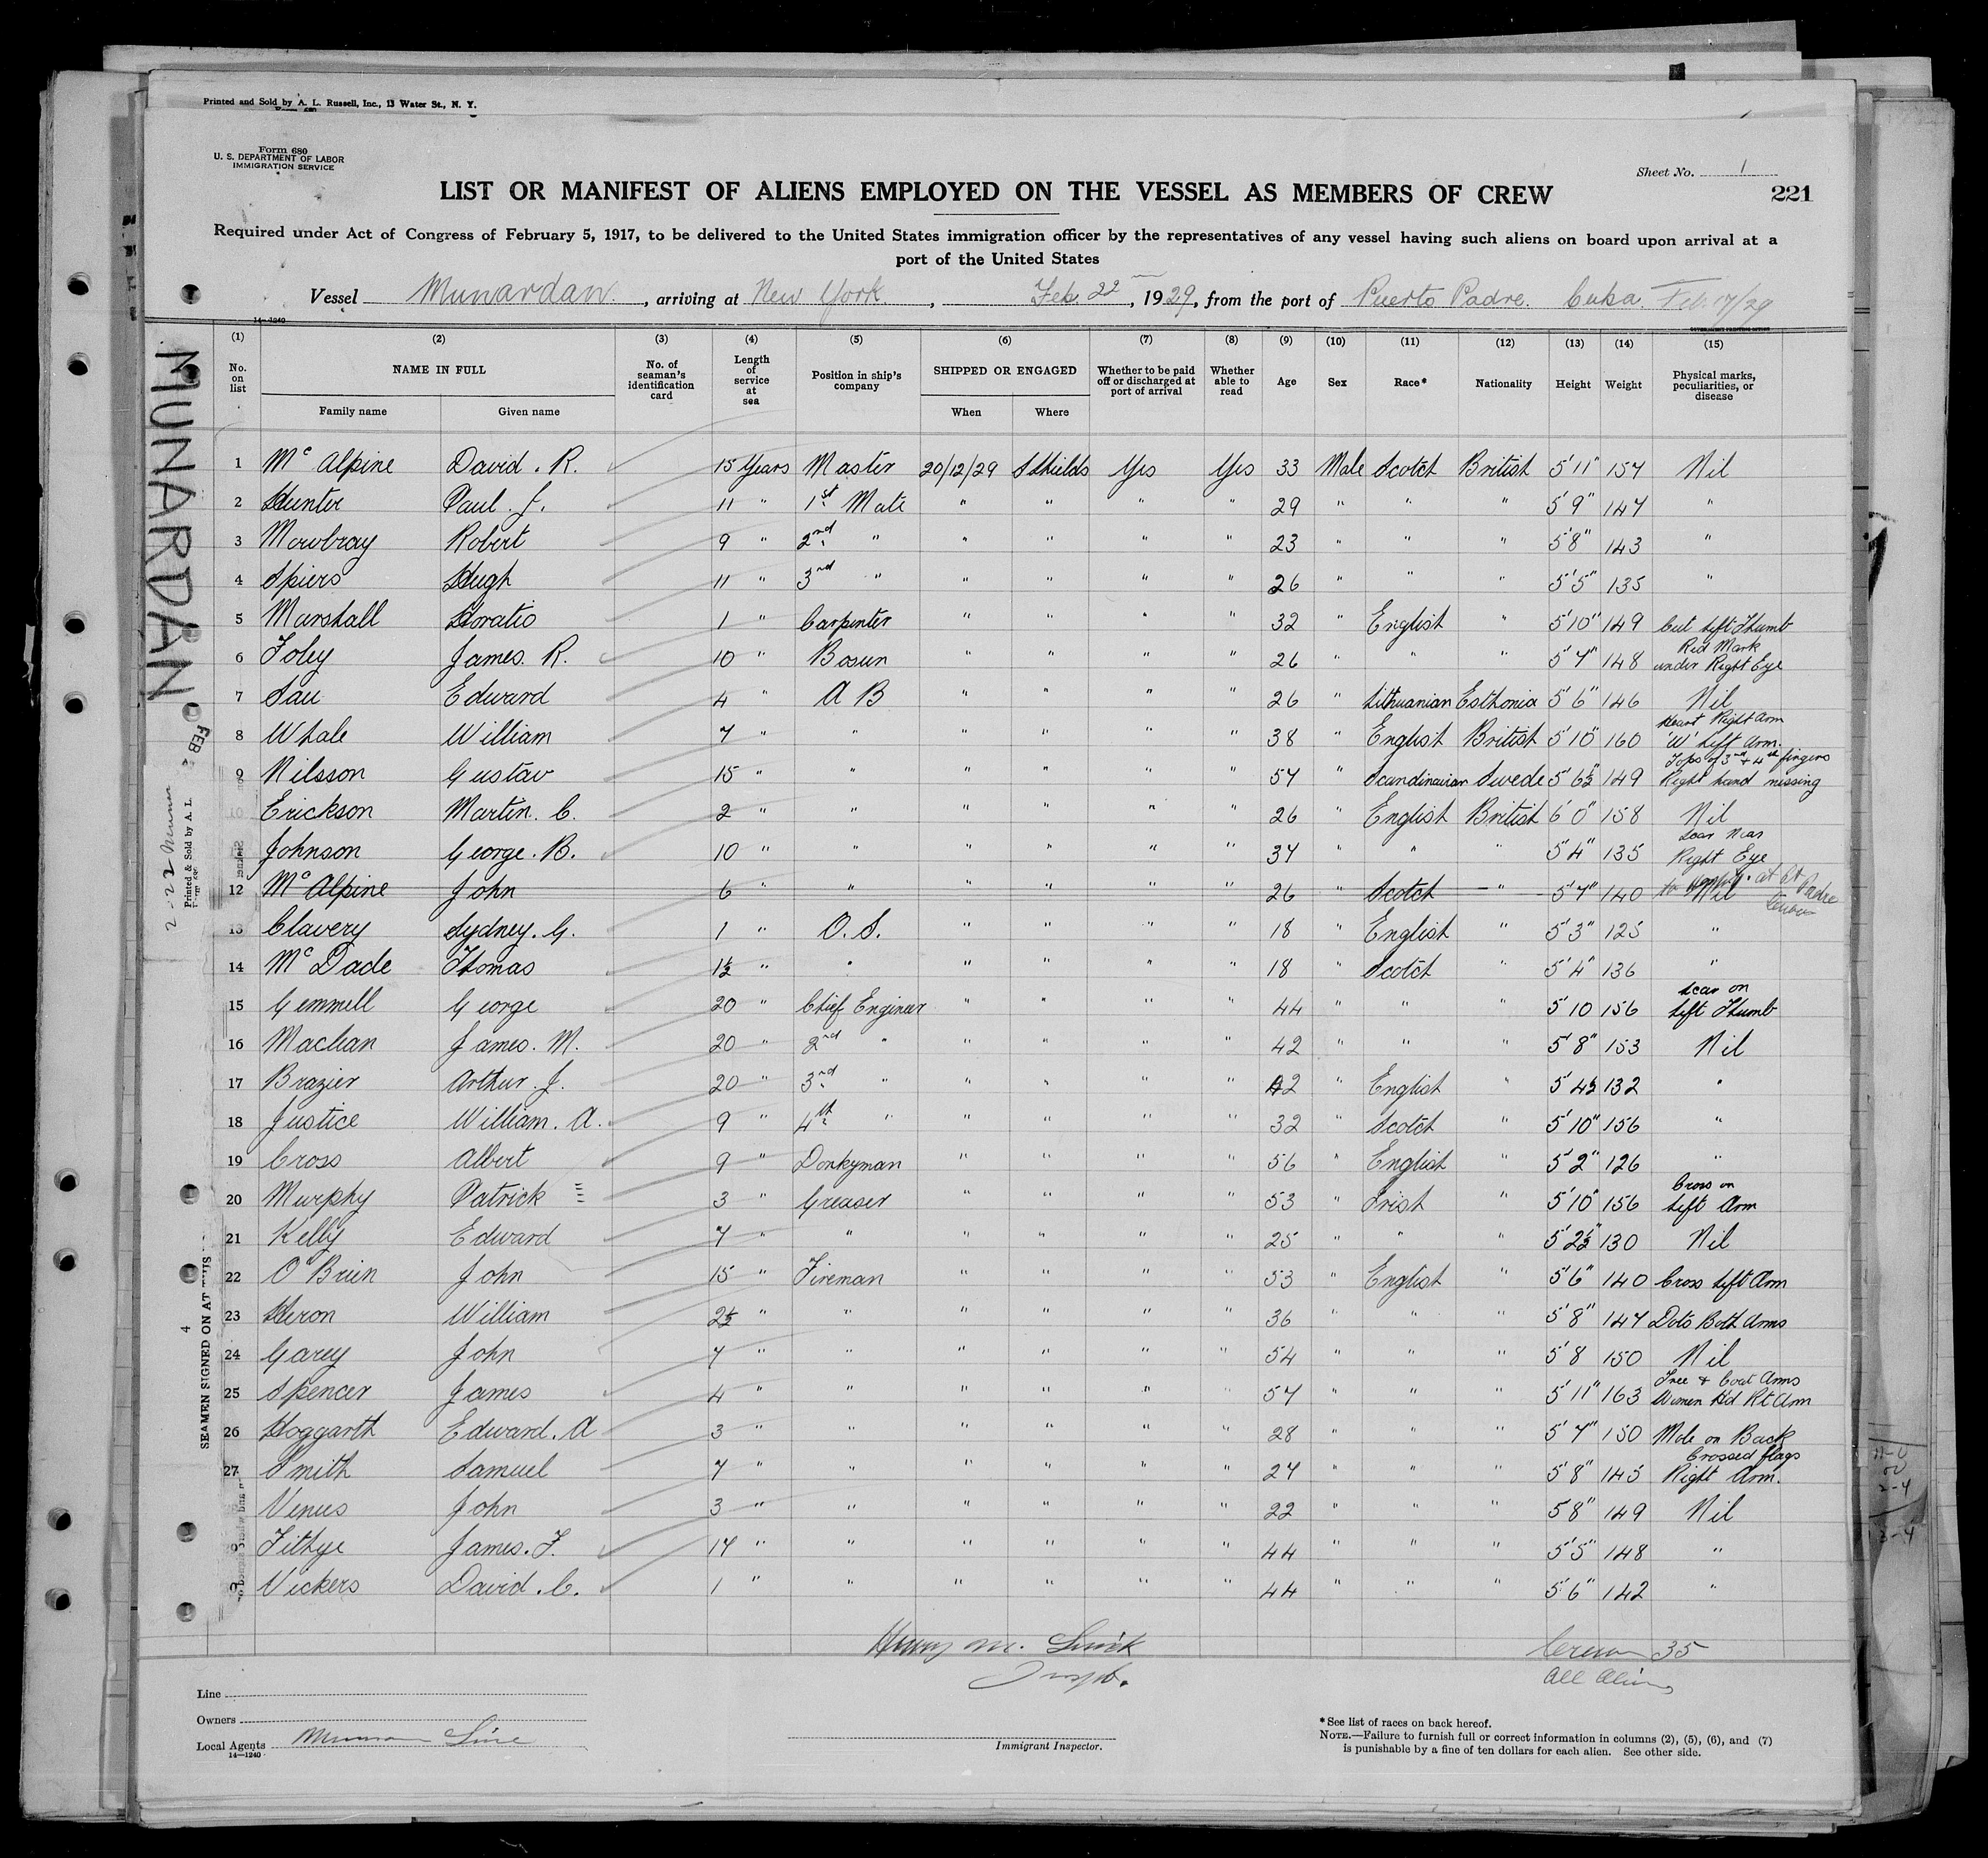 Printed and Sold by A. L. Russell, Inc., 13 Water St., N. Y.
Form 680
U. S. DEPARTMENT OF LABOR
IMMIGRATION SERVICE
Sheet No. 1
LIST OR MANIFEST OF ALIENS EMPLOYED ON THE VESSEL AS MEMBERS OF CREW
221
Required under Act of Congress of February 5, 1917, to be delivered to the United States immigration officer by the representatives of any vessel having such aliens on board upon arrival at a
port of the United States
Vessel Munardan, arriving at New York, Feb 22, 1929, from the port of Puerto Padre. Cuba. Feb. 17/29
14-1240
(1) (2) (3) (4) (5) (6) (7) (8) (9) (10) (11) (12) (13) (14) (15)
No. on list NAME IN FULL No. of seaman's identification card Length of service at sea Position in ship's company SHIPPED OR ENGAGED Whether to be paid off or discharged at port of arrival Whether able to read Age Sex Race* Nationality Height Weight Physical marks, peculiarities, or disease
Family name Given name When Where
1 Mc Alpine David. R. 15 Years Master 20/12/29 S Shields Yes Yes 33 Male Scotch British 5'11" 157 Nil
2 Hunter Paul. J. 11 " 1st Mate " " " " 29 " " " 5'9" 147 "
3 Mowbray Robert 9 " 2nd " " " " " 23 " " " 5'8" 143 "
4 Spiers Hugh 11 " 3rd " " " " " 26 " " " 5'5" 135 "
5 Marshall Horatio 1 " Carpenter " " " " 32 " English " 5'10" 149 Cut Left Thumb
6 Foley James. R. 10 " Bosun " " " " 26 " " " 5'7" 148 Red Mark under Right Eye
7 Sau Edward 4 " A B " " " " 26 " Lithuanian Esthonia 5'6" 146 Nil
8 Whale William 7 " " " " " " 38 " English British 5'10" 160 Heart Right Arm 'W' Left Arm.
9 Nilsson Gustav 15 " " " " " " 57 " Scandinavian Swede 5'6½" 149 Tops of 3rd & 4th fingers Right hand missing
10 Erickson Martin. C. 2 " " " " " " 26 " English British 6'0" 158 Nil
Johnson George. B. 10 " " " " " " 37 " " " 5'4" 135 Scar Near Right Eye
12 Mc Alpine John 6 " " " " " " 26 " Scotch " 5'7" 140 Nil to hospital at Pt Padre
13 Clavery Sydney. G. 1 " O. S. " " " " 18 " English " 5'3" 125 "
14 Mc Dade Thomas 1½ " " " " " " 18 " Scotch " 5'4" 136 "
15 Gemmell George 20 " Chief Engineer " " " " 44 " " " 5'10 156 Scar on Left Thumb
16 Maclean James. M. 20 " 2nd " " " " " 42 " " " 5'8" 153 Nil
17 Brazier Arthur. J. 20 " 3rd " " " " " 42 " English " 5'4½ 132 "
18 Justice William. A. 9 " 4th " " " " " 32 " Scotch " 5'10" 156 "
19 Cross Albert 9 " Donkyman " " " " 56 " English " 5'2" 126 "
20 Murphy Patrick 3 " Greaser " " " " 53 " Irish " 5'10" 156 Cross on Left Arm
21 Kelly Edward 7 " " " " " " 25 " " " 5'2½" 130 Nil
22 O'Brien John 15 " Fireman " " " " 53 " English " 5'6" 140 Cross Left Arm
23 Heron William 2½ " " " " " " 36 " " " 5'8" 147 Dots Both Arms
24 Garey John 7 " " " " " " 54 " " " 5'8 150 Nil
25 Spencer James 4 " " " " " " 57 " " " 5'11" 163 Tree & Coat Arms Women Hd Rt Arm
26 Hoggarth Edward. A 3 " " " " " " 28 " " " 5'7" 150 Mole on Back
27 Smith Samuel 7 " " " " " " 27 " " " 5'8" 145 Crossed flags Right Arm.
Venus John 3 " " " " " " 22 " " " 5 8" 149 Nil
Tithye James. F. 14 " " " " " " 44 " " " 5'5" 148 "
Vickers David. C. 1 " " " " " " 44 " " " 5'6" 142 "
MUNARDAN
FEB
2-22
Printed & Sold by A. L.
SEAMEN SIGNED ON AT
4
Henry M.
Insp.
35
All Aliens
Line
Owners
Local Agents Munson Line
14-1240
Immigrant Inspector.
*See list of races on back hereof.
NOTE.—Failure to furnish full or correct information in columns (2), (5), (6), and (7)
is punishable by a fine of ten dollars for each alien. See other side.